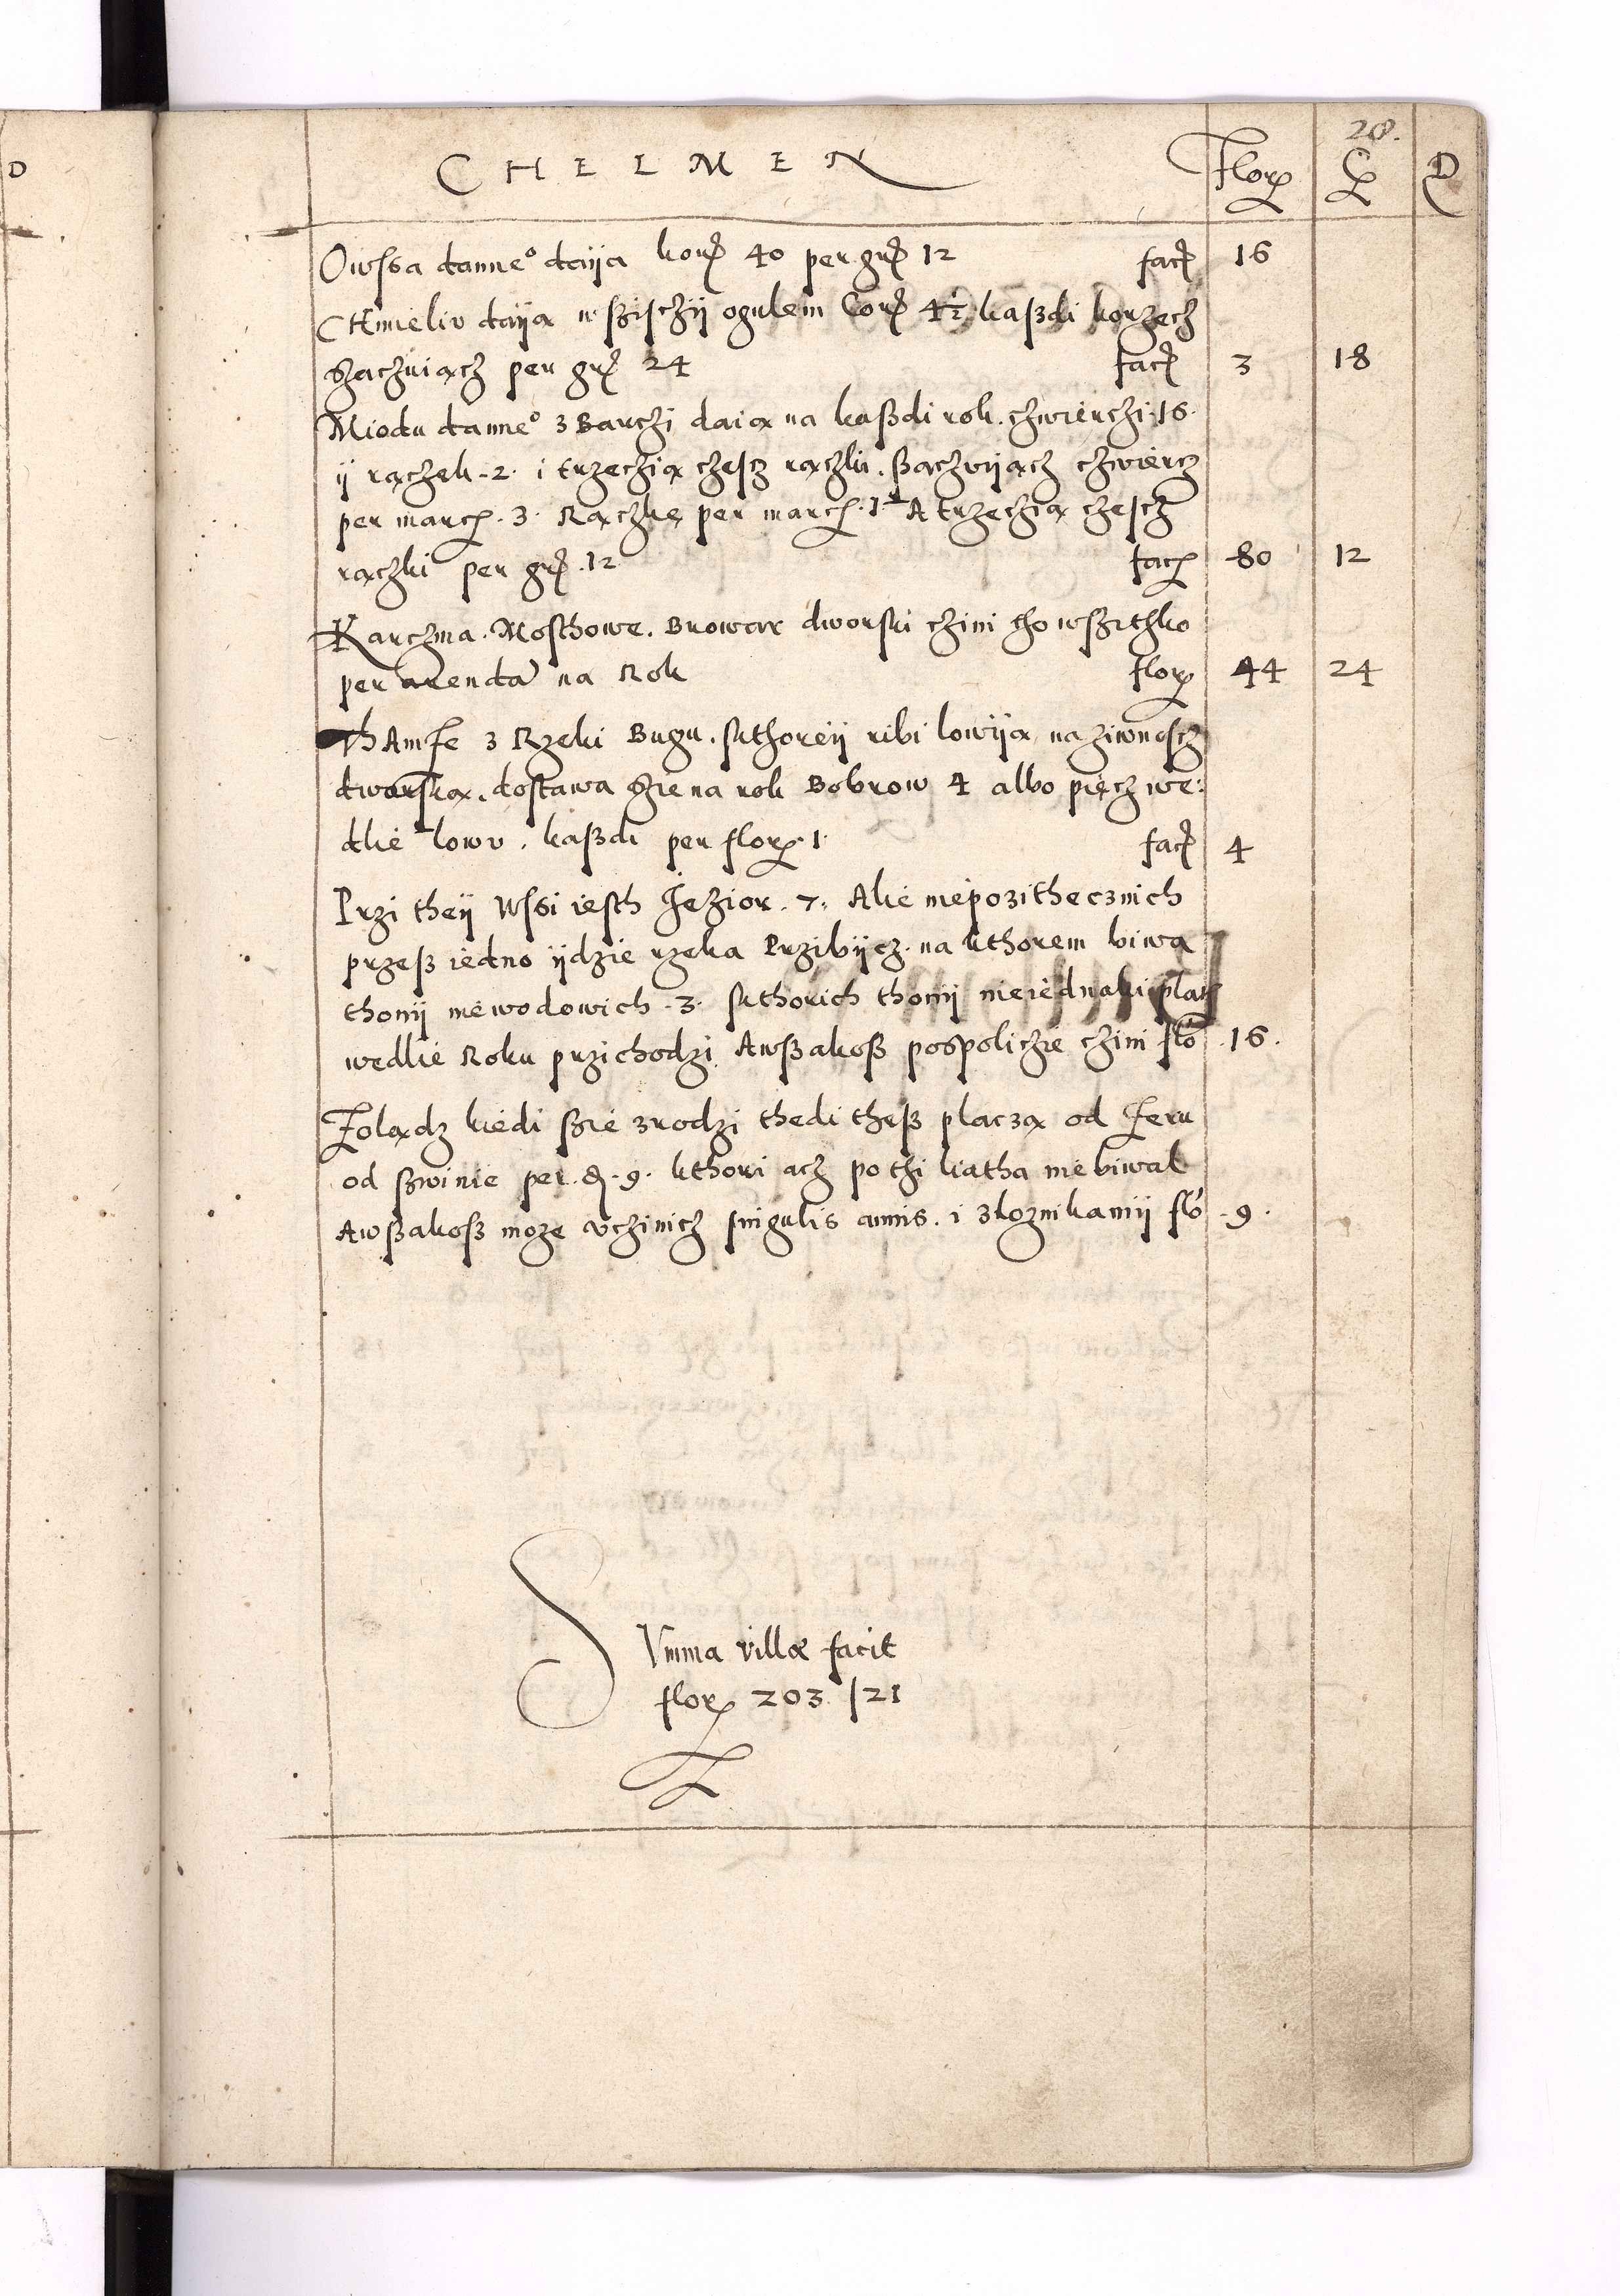 28.
CHELMEN Flor G D
D
Owssa danne° daija korz 40 per grz 12 facz 16
CHmieliu daija wszisczij ogulem Corz 4½ kaßdi korzecz
szaczuiącz per grz 24 facz 3 18
Miodu danne° z Barczi daią na kaßdi rok. chwierczi. 16.
ij rączek. 2. i trzeczią częscz rączki. ßaczviącz chwiercz
per marcz. 3. Rączkę per marcz. 1 A trzeczią częscz
rączki per grz. 12 facz 80 12
Karczma. Mosthowe. Browar dworski czini tho wszithko
per arenda na Rok flor 44 24
ThAmże z Rzeki Bugu. skthoreij ribi lowiją na ziwnoscz
dworską. dostawa szie na rok Bobrow 4 albo pięcz we:
dlie lowu. kaßdi per flor. 1. facz 4
Przi theij Wssi iesth Jezior. 7. Alie niepozithecznich
przeß iedno ijdzie rzeka Przibijcz. na kthorem biwa
thonij niewodowich. 3. skthorich thonij nieiednaki plat
wedlie Roku przichodzi. Awßakoß pospoliczie czini flo 16.
Żolądz kiedi szie zrodzi thedi theß placzą od żeru
od swinie per. d. 9. kthori acz po thi liatha niebiwal
Awßakoß moze uczinicz singulis annis. i złoznikamij flo 9.
SVmma villæ facit
flor 203. /21